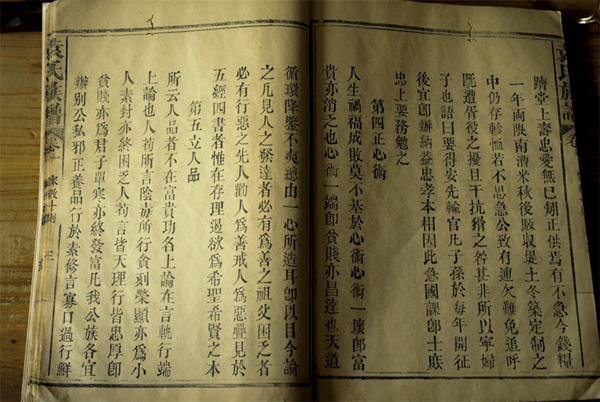 躋堂上壽忠愛無已矧正供焉有不急今錢糧
一年兩限南漕米秋後敗收是土冬築定制之
中仍存軫恤若不思急公致有逋欠難免追呼
既遭胥役之擾且干抗猾之咎甚非所以寧婦
子也語曰要得安先輸官凡子孫於每年開征
後宜卽辦納益忠孝本相因此急國課卽士庶
忠上要務勉之
第四正心術
人生禍福成敗莫不基於心術心術一壞卽富
貴亦消乏也心術一端卽貧賤亦昌達也天道
循環降鑒不爽總由一心所造耳卽以目今論
之凡見人之發達者必有為善之祖父困乏者
必有行惡之先人勸人為善戒人為惡疊見於
五經四書者惟在存理遏欲為希聖希賢之本
第五立人品
所云人品者不在富貴功名上論在言軌行端
上論也人苟所言陰毒所行貪刻榮顯亦為小
人素封亦終困乏人苟言皆天理行皆忠厚卽
貧賤亦為君子單寒亦終發富凡我公族各宜
辦別公私邪正養品行於素修言寡口過行鮮
袁氏族譜 卷一 家教十則 三
袁氏族譜 卷